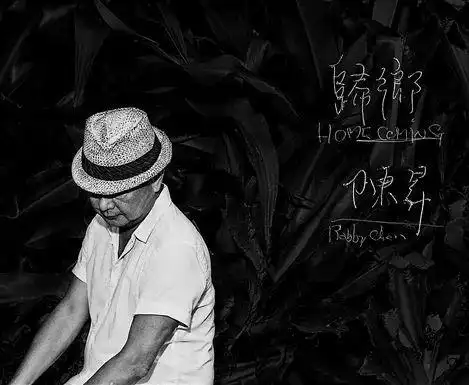 歸鄉
HOMECOMING
陳昇
Bobby Chen